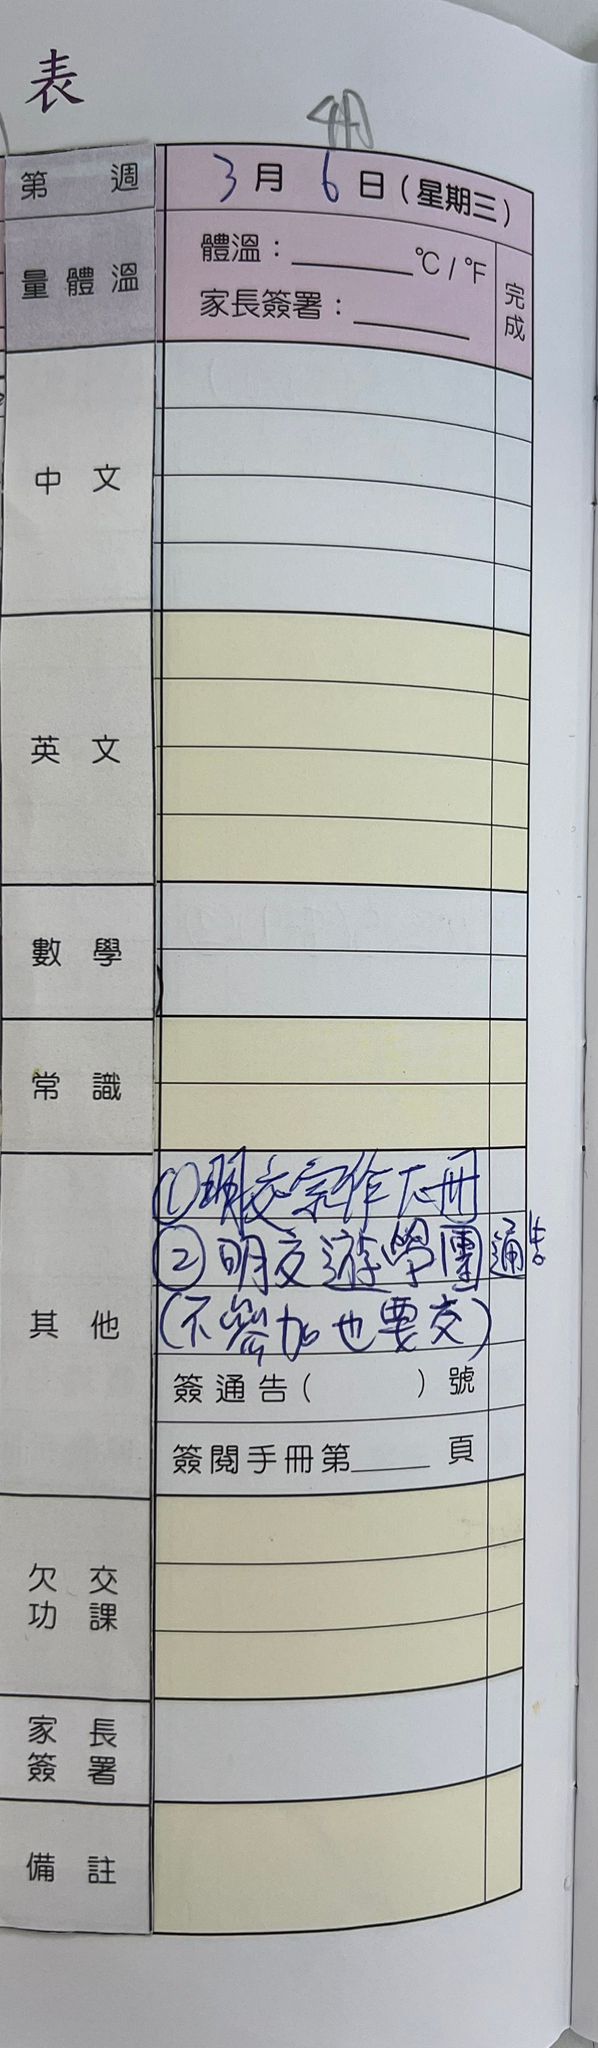 表
第 週
3月6日(星期三)
量體溫
體溫:______°C/°F
家長簽署:______
完成
中文
英文
數學
常識
其他
①明交宗作大冊
②明交遊學團通告
(不參加也要交)
簽通告( )號
簽閱手冊第____頁
欠交
功課
家長
簽署
備註